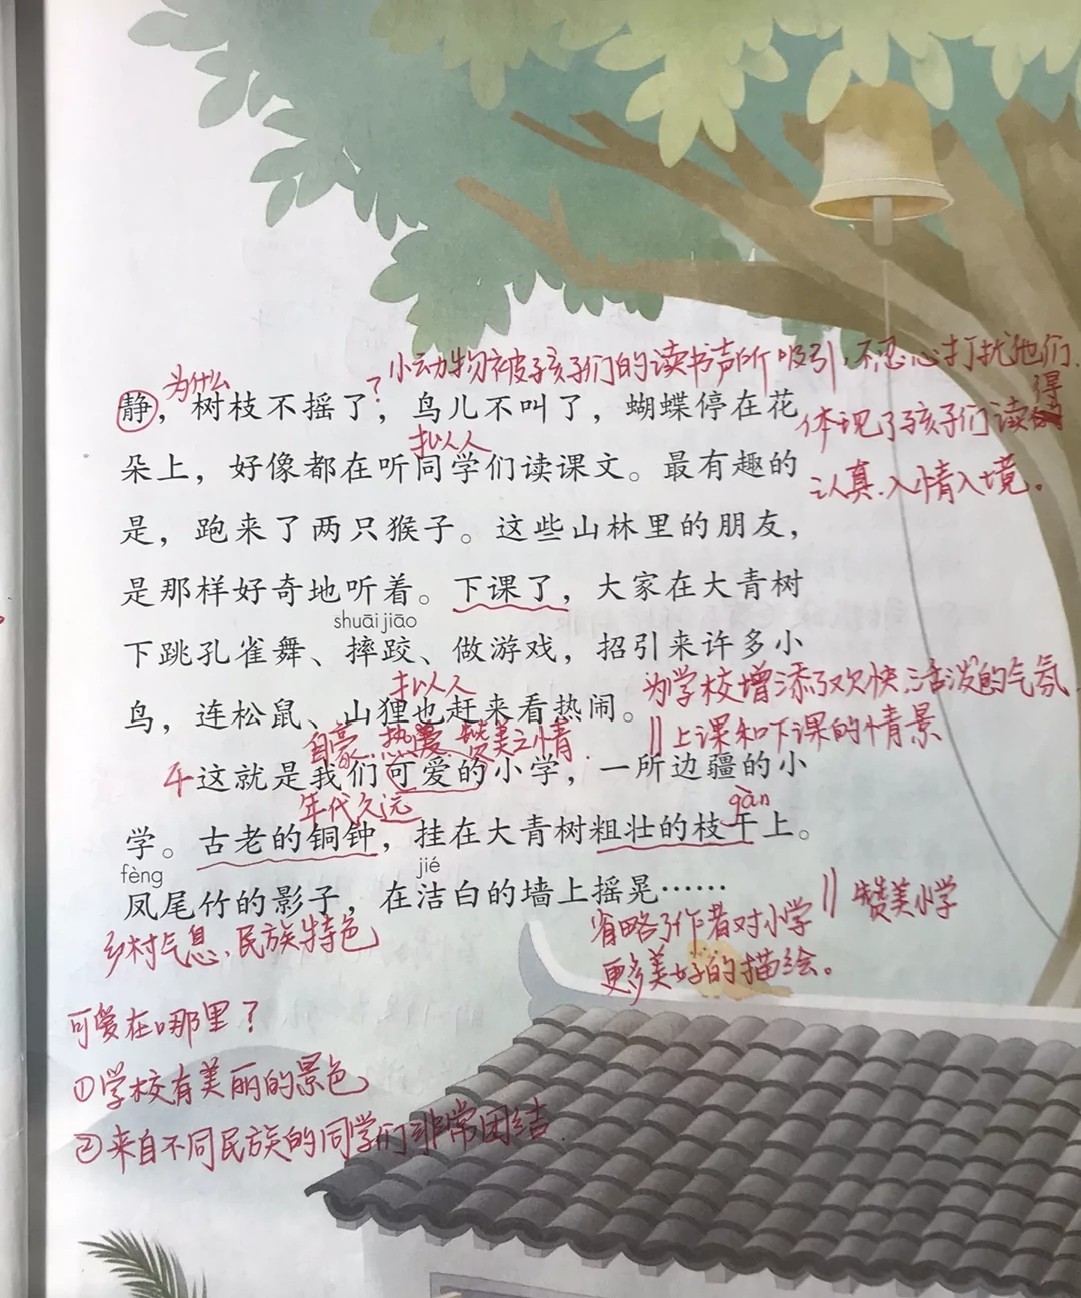 小动物被孩子们的读书声所吸引，不忍心打扰他们，
为什么？
得
静，树枝不摇了，鸟儿不叫了，蝴蝶停在花
体现了孩子们读
拟人
朵上，好像都在听同学们读课文。最有趣的
认真、入情入境。
是，跑来了两只猴子。这些山林里的朋友，
是那样好奇地听着。下课了，大家在大青树
shuāi jiāo
下跳孔雀舞、摔跤、做游戏，招引来许多小
拟人
为学校增添了欢快、活泼的气氛
鸟，连松鼠、山狸也赶来看热闹。
‖上课和下课的情景
自豪、热爱、赞美之情
这就是我们可爱的小学，一所边疆的小
年代久远
gàn
学。古老的铜钟，挂在大青树粗壮的枝干上。
fèng jié
凤尾竹的影子，在洁白的墙上摇晃……
‖赞美小学
乡村气息、民族特色
省略了作者对小学
更多美好的描绘。
可爱在哪里？
①学校有美丽的景色
②来自不同民族的同学们非常团结